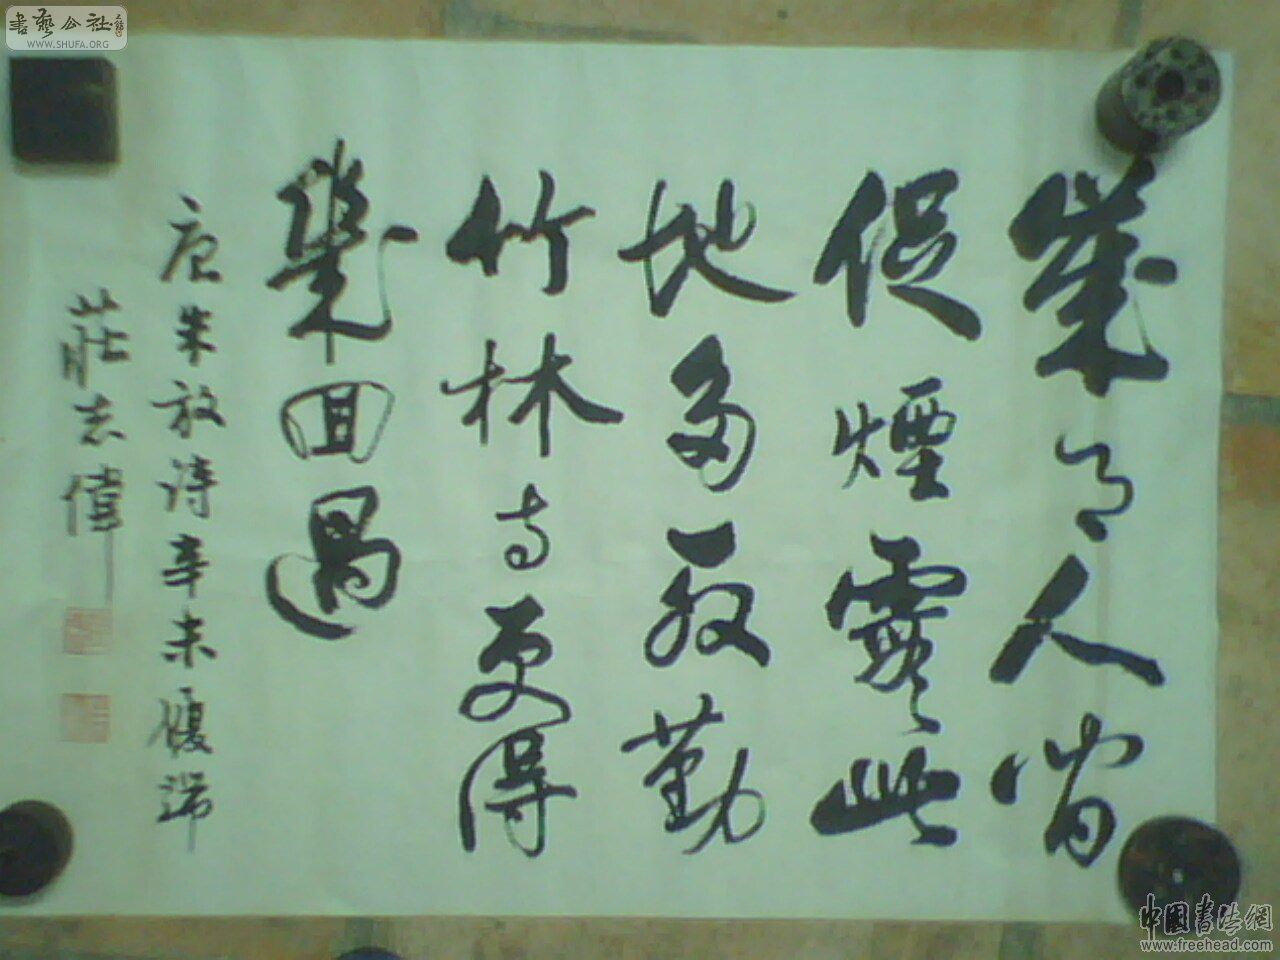 歲月人間
促煙霞此
地多殷勤
竹林寺更得
幾回過
唐朱放詩辛未履端
莊志偉
書藝公社
WWW.SHUFA.ORG
中國書法網
www.freehead.com